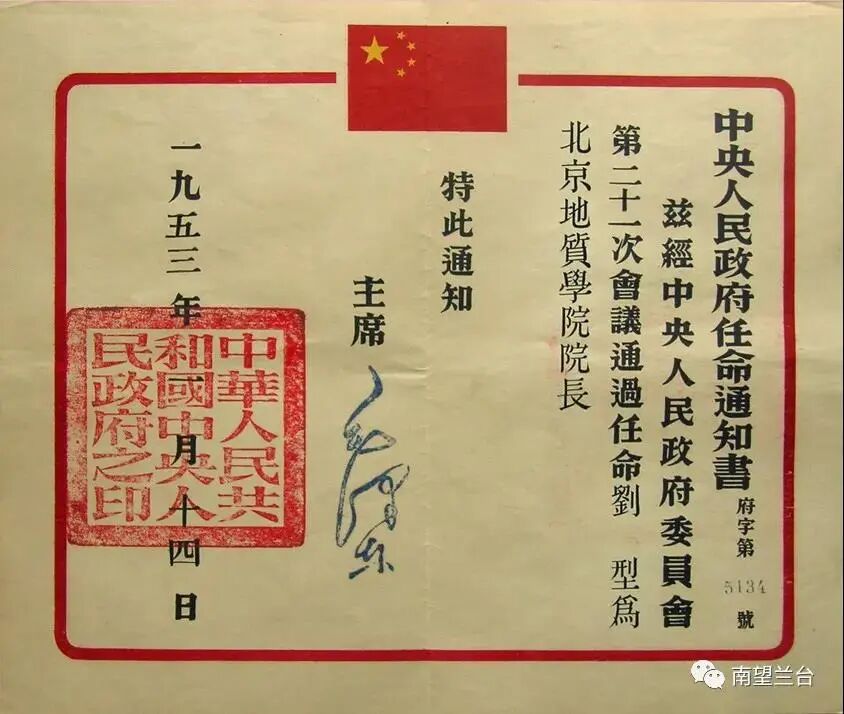 中央人民政府任命通知書
府字第5134號
茲經中央人民政府委員會
第二十一次會議通過任命劉 型爲
北京地質學院院長
特此通知
主席 毛澤東
一九五三年一月十四日
中華人民共
和國中央人
民政府之印
南望兰台